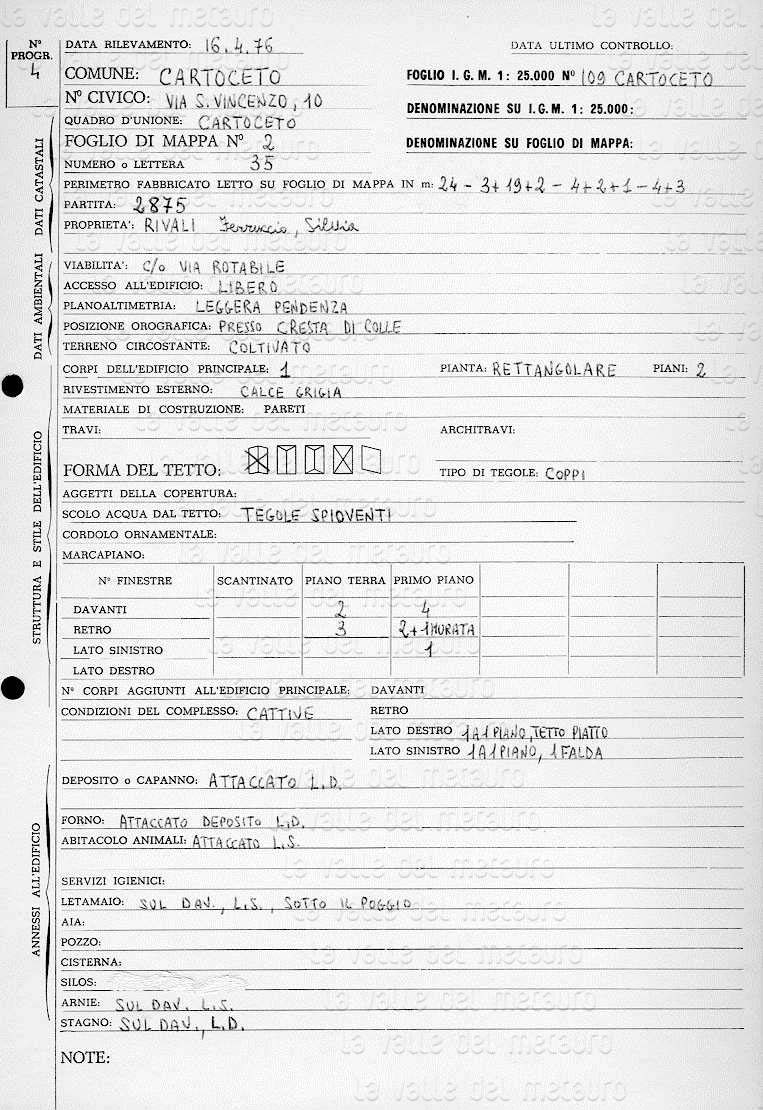 la valle del metauro
N° PROGR. 4
DATA RILEVAMENTO: 16.4.76 DATA ULTIMO CONTROLLO:
COMUNE: CARTOCETO FOGLIO I. G. M. 1: 25.000 N° 109 CARTOCETO
N° CIVICO: VIA S. VINCENZO, 10 DENOMINAZIONE SU I. G. M. 1: 25.000:
QUADRO D'UNIONE: CARTOCETO
FOGLIO DI MAPPA N° 2 DENOMINAZIONE SU FOGLIO DI MAPPA:
NUMERO o LETTERA 35
PERIMETRO FABBRICATO LETTO SU FOGLIO DI MAPPA IN m: 24 - 3+19+2 - 4+2+1-4+3
PARTITA: 2875
PROPRIETA': RIVALI Ferruccio, Silvia
DATI CATASTALI
VIABILITA': C/o VIA ROTABILE
ACCESSO ALL'EDIFICIO: LIBERO
PLANOALTIMETRIA: LEGGERA PENDENZA
POSIZIONE OROGRAFICA: PRESSO CRESTA DI COLLE
TERRENO CIRCOSTANTE: COLTIVATO
DATI AMBIENTALI
CORPI DELL'EDIFICIO PRINCIPALE: 1 PIANTA: RETTANGOLARE PIANI: 2
RIVESTIMENTO ESTERNO: CALCE GRIGIA
MATERIALE DI COSTRUZIONE: PARETI
TRAVI: ARCHITRAVI:
FORMA DEL TETTO: TIPO DI TEGOLE: COPPI
AGGETTI DELLA COPERTURA:
SCOLO ACQUA DAL TETTO: TEGOLE SPIOVENTI
CORDOLO ORNAMENTALE:
MARCAPIANO:
N° FINESTRE SCANTINATO PIANO TERRA PRIMO PIANO
DAVANTI 2 4
RETRO 3 2+1 MURATA
LATO SINISTRO 1
LATO DESTRO
STRUTTURA E STILE DELL'EDIFICIO
N° CORPI AGGIUNTI ALL'EDIFICIO PRINCIPALE: DAVANTI
CONDIZIONI DEL COMPLESSO: CATTIVE RETRO
LATO DESTRO 1 A 1 PIANO, TETTO PIATTO
LATO SINISTRO 1 A 1 PIANO, 1 FALDA
DEPOSITO o CAPANNO: ATTACCATO L.D.
FORNO: ATTACCATO DEPOSITO L.D.
ABITACOLO ANIMALI: ATTACCATO L.S.
SERVIZI IGIENICI:
LETAMAIO: SUL DAV., L.S., SOTTO IL POGGIO
AIA:
POZZO:
CISTERNA:
SILOS:
ARNIE: SUL DAV. L.S.
STAGNO: SUL DAV., L.D.
ANNESSI ALL'EDIFICIO
NOTE: